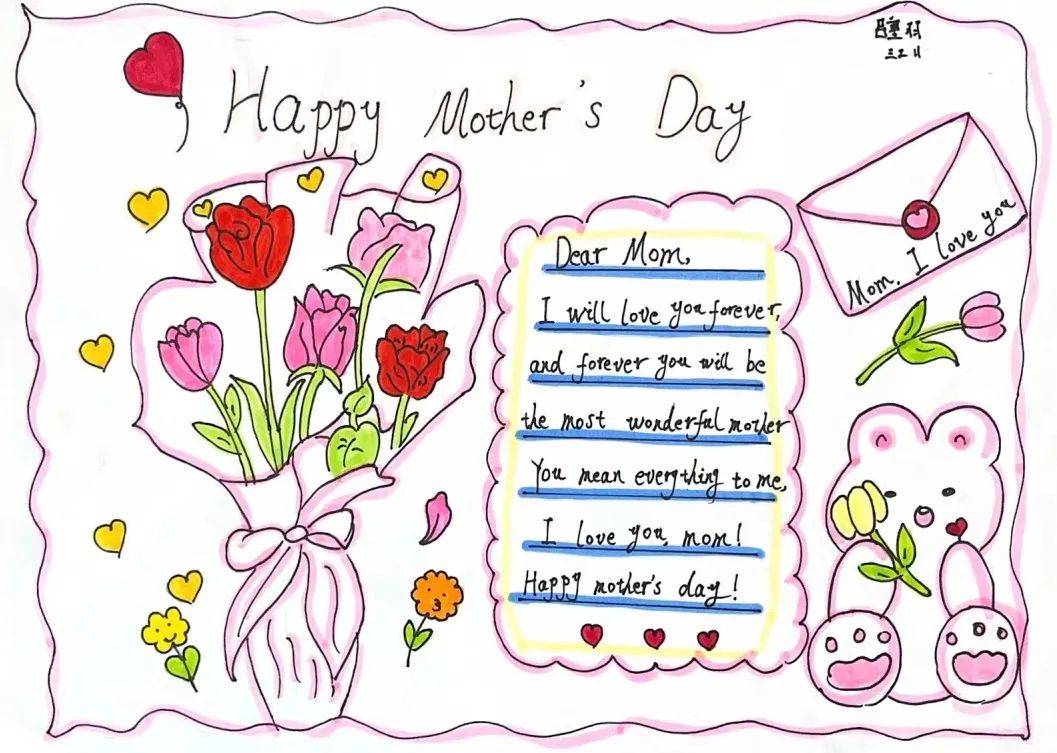 Happy Mother's Day
Mom. I love you
Dear Mom,
I will love you forever,
and forever you will be
the most wonderful mother
You mean everything to me,
I love you, mom!
Happy mother's day!